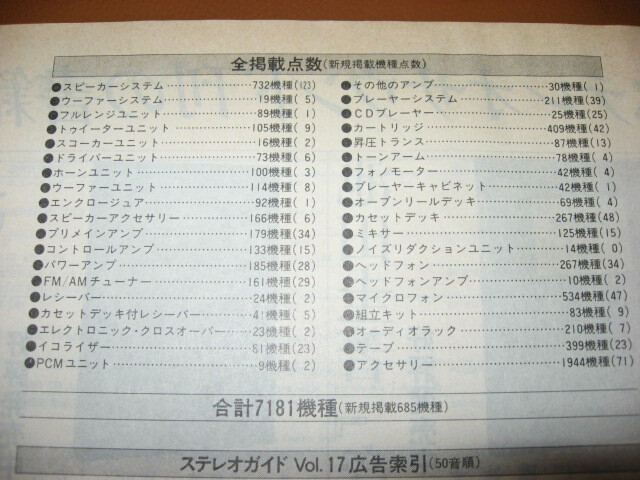 全掲載点数(新規掲載機種点数)
●スピーカーシステム………732機種(123)
●ウーファーシステム………19機種( 5)
●フルレンジユニット………89機種( 1)
●トゥイーターユニット………105機種( 9)
●スコーカーユニット………16機種( 2)
●ドライバーユニット………73機種( 6)
●ホーンユニット………100機種( 3)
●ウーファーユニット………114機種( 8)
●エンクロージュア………92機種( 1)
●スピーカーアクセサリー………166機種( 6)
●プリメインアンプ………179機種(34)
●コントロールアンプ………133機種(15)
●パワーアンプ………185機種(28)
●FM/AMチューナー………161機種(29)
●レシーバー………24機種( 2)
●カセットデッキ付レシーバー………41機種( 5)
●エレクトロニック・クロスオーバー………23機種( 2)
●イコライザー………81機種(23)
●PCMユニット………9機種( 2)
●その他のアンプ………30機種( 1)
●プレーヤーシステム………211機種(39)
●CDプレーヤー………25機種(25)
●カートリッジ………409機種(42)
●昇圧トランス………87機種(13)
●トーンアーム………78機種( 4)
●フォノモーター………42機種( 4)
●プレーヤーキャビネット………42機種( 1)
●オープンリールデッキ………69機種( 4)
●カセットデッキ………267機種(48)
●ミキサー………125機種(15)
●ノイズリダクションユニット………14機種( 0)
●ヘッドフォン………267機種(34)
●ヘッドフォンアンプ………10機種( 2)
●マイクロフォン………534機種(47)
●組立キット………83機種( 9)
●オーディオラック………210機種( 7)
●テープ………399機種(23)
●アクセサリー………1944機種(71)
合計7181機種(新規掲載685機種)
ステレオガイド Vol.17 広告索引(50音順)